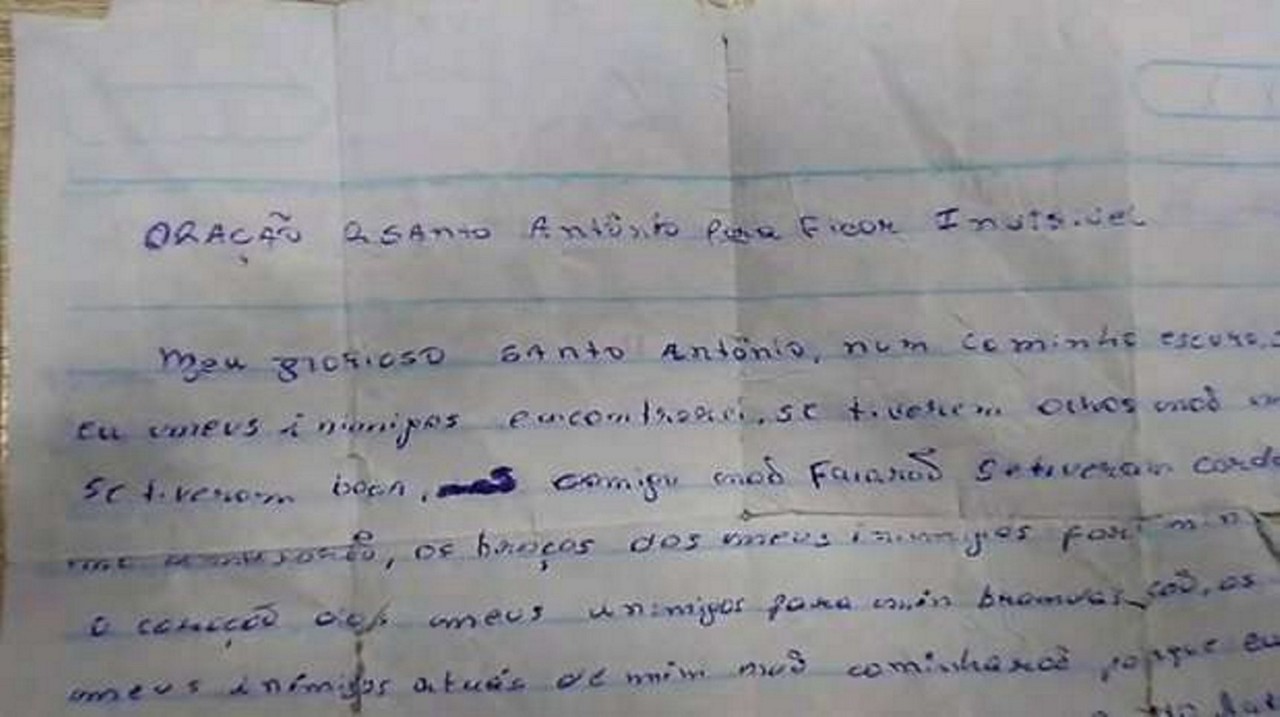 ORAÇÃO A SANTO Antônio Para Ficar Invisível
Meu glorioso SANTO Antônio, num caminho escuro,
eu meus inimigos encontrarei, se tiverem olhos naõ
se tiverem boca, comigo naõ Falaraõ Setiverem
os braços dos meus inimigos por min
o coração dos meus inimigos para min saõ, os
meus inimigos atrás de mim naõ caminharaõ porque eu